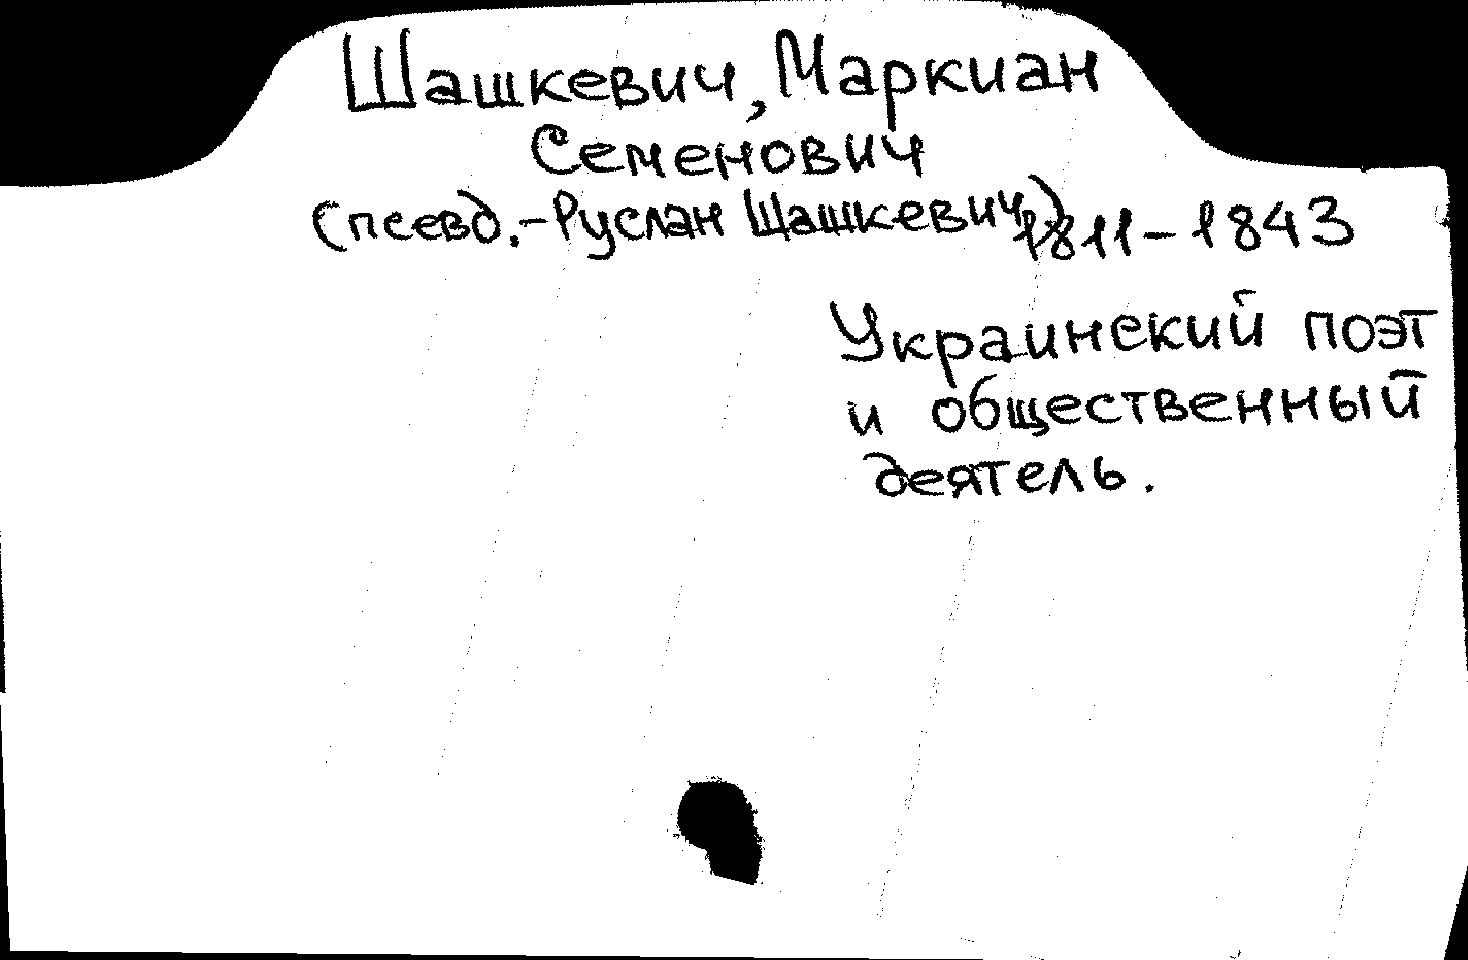 Шашкевич, Маркиан
Семенович
(псевд.-Руслан Шашкевич) 1811-1843
Украинский поэт
и общественный
деятель.